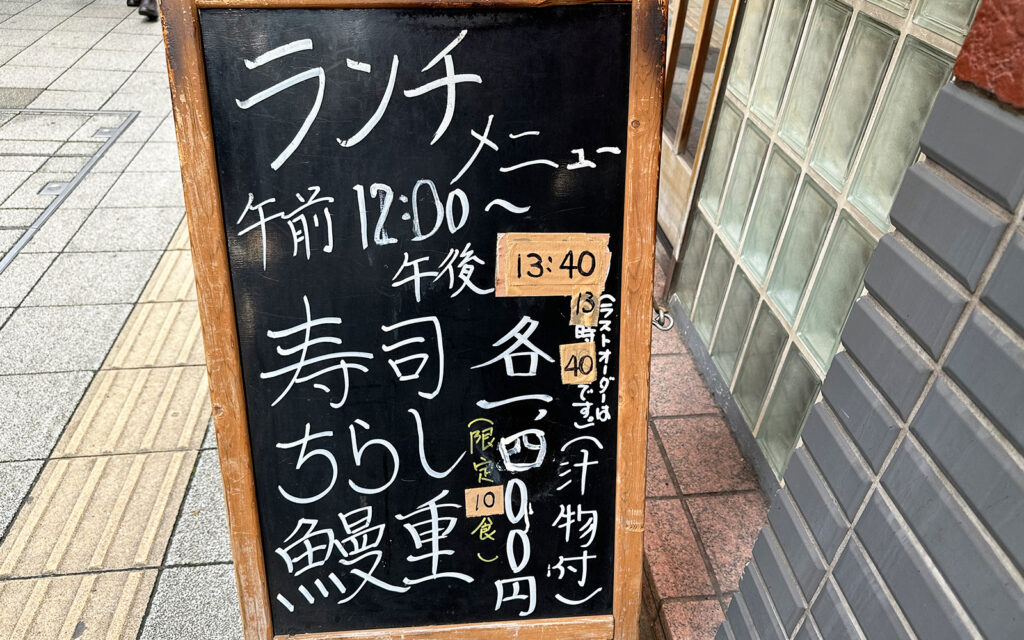 ランチ
メニュー
午前12:00～
午後13:40
(ラストオーダーは
13時40です。)
寿司
ちらし
鰻重
(限定10食)
各一,四00円
(汁物付)